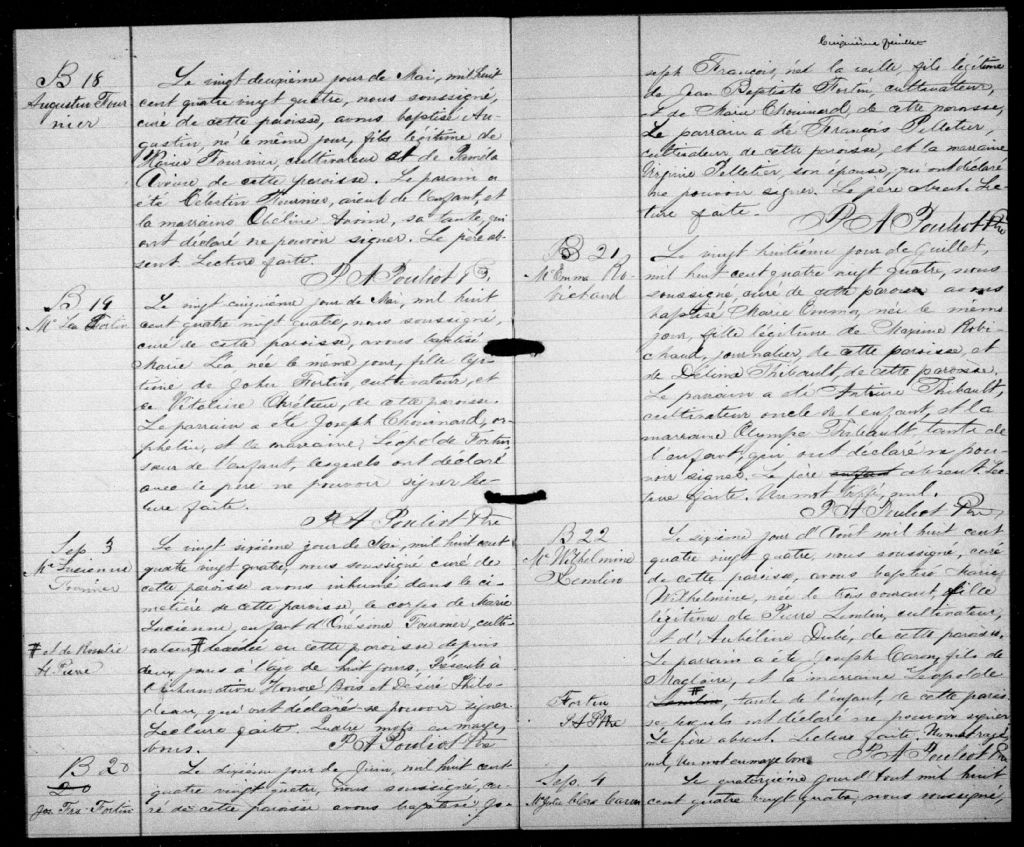 B 18
Augustin Four
nier
Le vingt deuxième jour de Mai, mil huit
cent quatre vingt quatre, nous soussigné,
curé de cette paroisse, avons baptisé Au-
gustin, né le même jour, fils légitime de
Fournier, cultivateur et de Paméla
de cette paroisse. Le parrain a
été Célestin Fournier, aïeul de l'enfant, et
la marraine sa tante, qui
ont déclaré ne pouvoir signer. Le père ab-
sent. Lecture faite.
P A Pouliot Ptre
B 19
Me Léa Fortin
Le vingt cinquième jour de Mai, mil huit
cent quatre vingt quatre, nous soussigné,
curé de cette paroisse, avons baptisé
Marie Léa née le même jour, fille légi-
time de John Fortin, cultivateur, et
de Vitaline Chrétien, de cette paroisse.
Le parrain a été Joseph Chouinard, or-
phelin, et la marraine, Léopolde Fortin
sœur de l'enfant, lesquels ont déclaré
avec le père ne pouvoir signer Lec-
ture faite.
P A Pouliot Ptre
Sep. 3
Me Lucienne
Fournier
Le vingt sixième jour de Mai, mil huit cent
quatre vingt quatre, nous soussigné curé de
cette paroisse avons inhumé dans le ci-
metière de cette paroisse, le corps de Marie
Lucienne, enfant d'Onésime Fournier, culti-
vateur # décédée en cette paroisse depuis
# et de Rosalie
St Pierre
deux jours à l'âge de huit jours. Présents à
l'inhumation Honoré Bois et Désiré
qui ont déclaré ne pouvoir signer
Lecture faite. Quatre mots en marge,
bons.
P A Pouliot Ptre
B 20
20
Jos Frs Fortin
Le dixième jour de Juin, mil huit cent
quatre vingt quatre, nous soussigné, cu-
ré de cette paroisse avons baptisé Jo-
Cinquième feuillet
seph François, né la veille, fils légitime
de Jean Baptiste Fortin, cultivateur,
et de Marie Chouinard, de cette paroisse,
Le parrain a été François Pelletier,
cultivateur de cette paroisse, et la marraine
Virginie Pelletier, son épouse, qui ont déclaré
ne pouvoir signer. Le père absent. Lec-
ture faite.
P A Pouliot Ptre
B 21
Me Emma Ro-
bichaud
Le vingt huitième jour de Juillet,
mil huit cent quatre vingt quatre, nous
soussigné, curé de cette paroisse avons
baptisé Marie Emma, née le même
jour, fille légitime de Maxime Robi-
chaud, journalier, de cette paroisse, et
de Délima Thibault, de cette paroisse.
Le parrain a été Antoine Thibault,
cultivateur oncle de l'enfant, et la
marraine Olympe Thibault, tante de
l'enfant, qui ont déclaré ne pou-
voir signer. Le père enfant absent. Lec-
ture faite. Un mot biffé, nul.
P A Pouliot Ptre
B 22
Me Wilhelmine
Lemlin
Le sixième jour d'Août mil huit cent
quatre vingt quatre, nous soussigné, curé
de cette paroisse, avons baptisé Marie
Wilhelmine, née le trois courant, fille
légitime de Pierre Lemlin, cultivateur,
et d'Aubéline Dubé, de cette paroisse.
Le parrain a été Joseph Caron, fils de
Magloire, et la marraine Léopolde
# tante de l'enfant, de cette parois-
Fortin
P A P Ptre
se lesquels ont déclaré ne pouvoir signer
Le père absent. Lecture faite. Un mot rayé,
nul, Un mot en marge bon.
P A Pouliot Ptre
Sep. 4
Me Julie Clara Caron
Le quatorzième jour d'Août mil huit
cent quatre vingt quatre, nous soussigné,